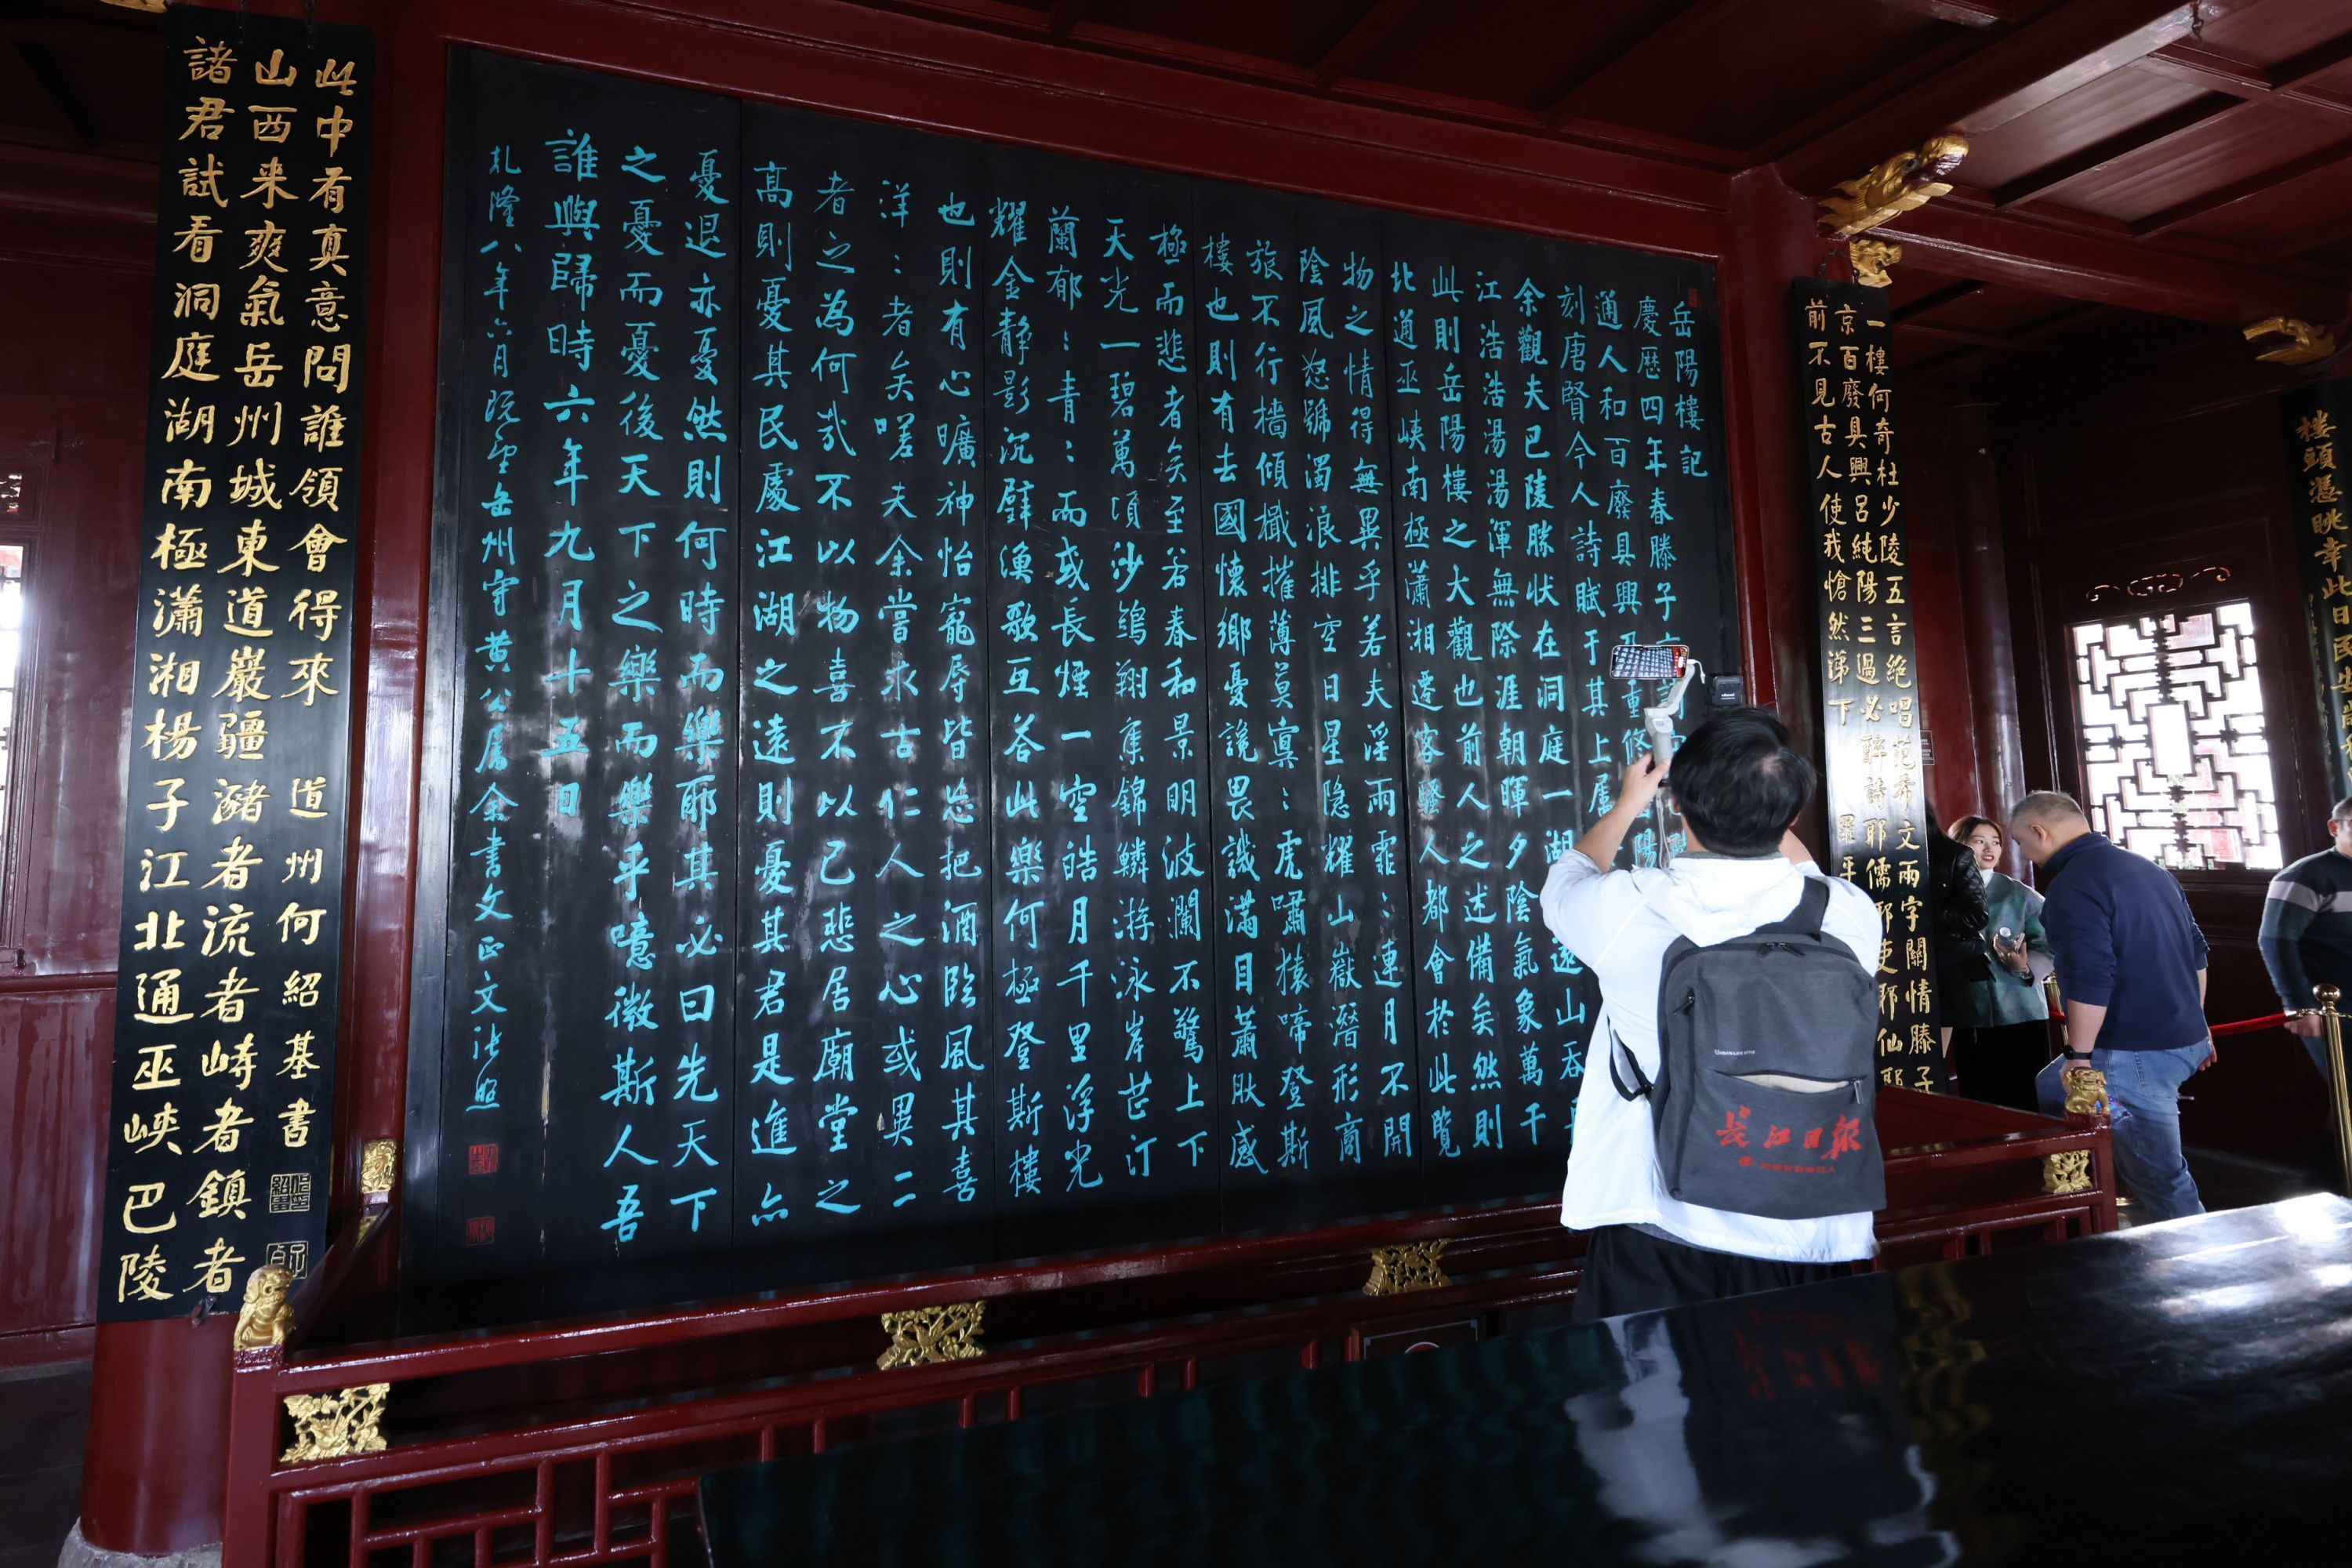 楼頭憑眺幸此日民生
一樓何奇杜少陵五言絶唱范希文兩字關情滕子
京百廢具興呂純陽三過必醉詩耶儒耶吏耶仙耶
前不見古人使我愴然涕下
岳陽樓記
慶歷四年春滕子
通人和百廢具興乃重修岳陽
刻唐賢今人詩賦于其上屬
余觀夫巴陵勝状在洞庭一湖遠山吞
江浩浩湯湯渾無際涯朝暉夕陰氣象萬千
此則岳陽樓之大觀也前人之述備矣然則
北通巫峽南極瀟湘遷客騷人都會於此覽
物之情得無異乎若夫淫雨霏:連月不開
陰風怒號濁浪排空日星隱耀山嶽潛形商
旅不行檣傾檝摧薄莫冥:虎嘯猿啼登斯
樓也則有去國懷鄉憂讒畏譏滿目蕭肰感
極而悲者矣至若春和景明波瀾不驚上下
天光一碧萬頃沙鷗翔集錦鱗游泳岸芷汀
蘭郁:青:而或長煙一空皓月千里浮光
耀金靜影沉璧漁歌互荅此樂何極登斯樓
也則有心曠神怡寵辱皆忘把酒臨風其喜
洋:者矣嗟夫余嘗求古仁人之心或異二
者之為何哉不以物喜不以己悲居廟堂之
高則憂其民處江湖之遠則憂其君是進亦
憂退亦憂然則何時而樂耶其必曰先天下
之憂而憂後天下之樂而樂乎噫微斯人吾
誰與歸時六年九月十五日
乾隆八年六月既望岳州守黃公屬余書文正文張照
此中有真意問誰領會得來 道州何紹基書
山西来爽氣岳州城東道巖疆瀦者流者峙者鎮者
諸君試看洞庭湖南極瀟湘楊子江北通巫峽巴陵
長江日報